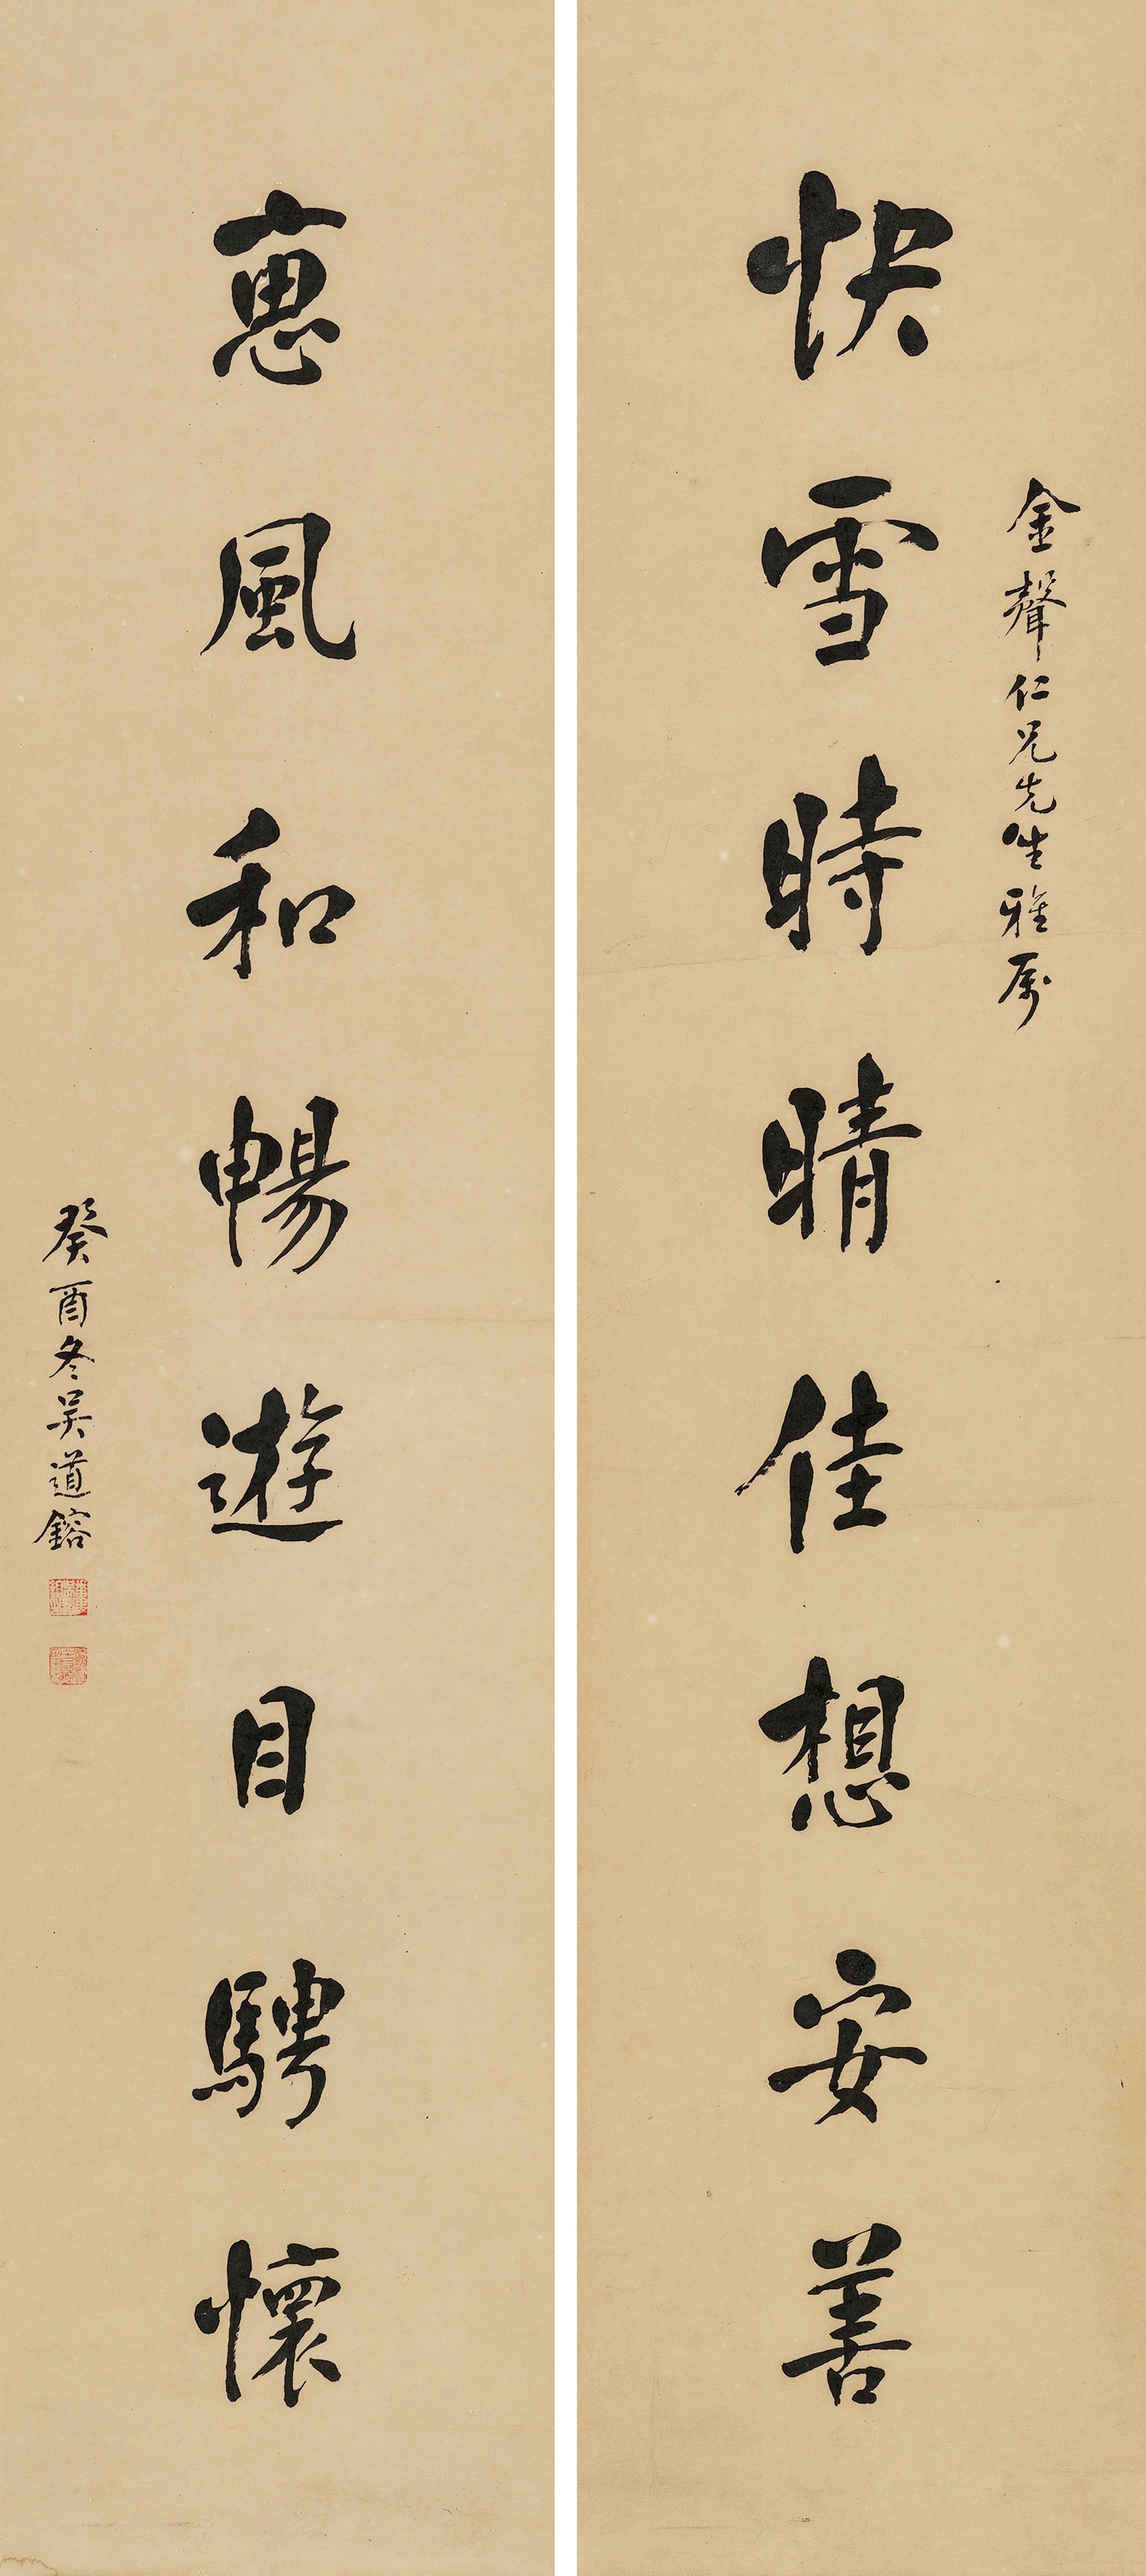 金聲仁兄先生雅属
快雪時晴佳想安善
恵風和暢遊目騁懷
癸酉冬吴道鎔